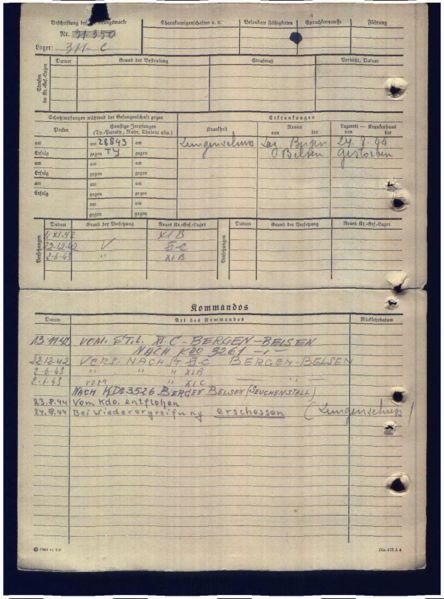 Beschriftung der Erkennungsmarke
Nr. 31350
Lager: 311-C
Charaktereigenschaften u. a.
Besondere Fähigkeiten
Sprachkenntnisse
Führung
Strafen im Kr.-Gef.-Lager
Datum
Grund der Bestrafung
Strafmaß
Verbüßt, Datum
Schutzimpfungen während der Gefangenschaft gegen
Erkrankungen
Pocken
Sonstige Impfungen
(Ty.-Paraty., Ruhr, Cholera usw.)
Krankheit
Revier
von bis
Lazarett - Krankenhaus
von bis
am
am 28843
Lungenschuss
Laz. Bergen
24.8.44
Erfolg
gegen TY
gegen
Belsen
gestorben
am
am
am
Erfolg
gegen
gegen
am
am
am
Erfolg
gegen
gegen
am
am
gegen
gegen
Versetzungen
Datum
Grund der Versetzung
Neues Kr.-Gef.-Lager
Versetzungen
Datum
Grund der Versetzung
Neues Kr.-Gef.-Lager
XI B
22.12.42
V
2.6.43
"
XI B
Kommandos
Datum
Art des Kommandos
Rückkehrdatum
13.11.42
VOM. STFL. C-BERGEN-BELSEN
NACH KDO 3261
22.12.42
VERS. NACH C BERGEN-BELSEN
2.6.43
" " " XI B
VOM " XI C
NACH KDO 3526 BERGEN BELSEN (SEUCHENSTALL)
23.8.44
Vom Kdo. entflohen
24.8.44
Bei Wiederergreifung erschossen (Lungenschuss)